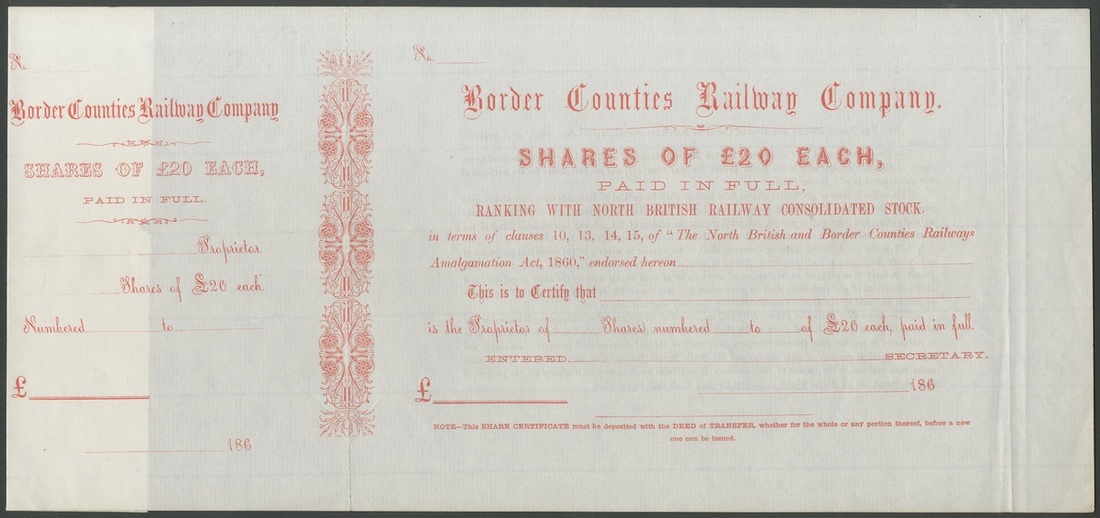 No.
Border Counties Railway Company
SHARES OF £20 EACH,
PAID IN FULL.
Proprietor.
Shares of £20 each.
Numbered to
£
186
No.
Border Counties Railway Company.
SHARES OF £20 EACH,
PAID IN FULL,
RANKING WITH NORTH BRITISH RAILWAY CONSOLIDATED STOCK.
in terms of clauses 10, 13, 14, 15, of "The North British and Border Counties Railways
Amalgamation Act, 1860," endorsed hereon
This is to Certify that
is the Proprietor of Shares numbered to of £20 each, paid in full.
ENTERED. SECRETARY.
£ 186
NOTE—This SHARE CERTIFICATE must be deposited with the DEED of TRANSFER, whether for the whole or any portion thereof, before a new
one can be issued.